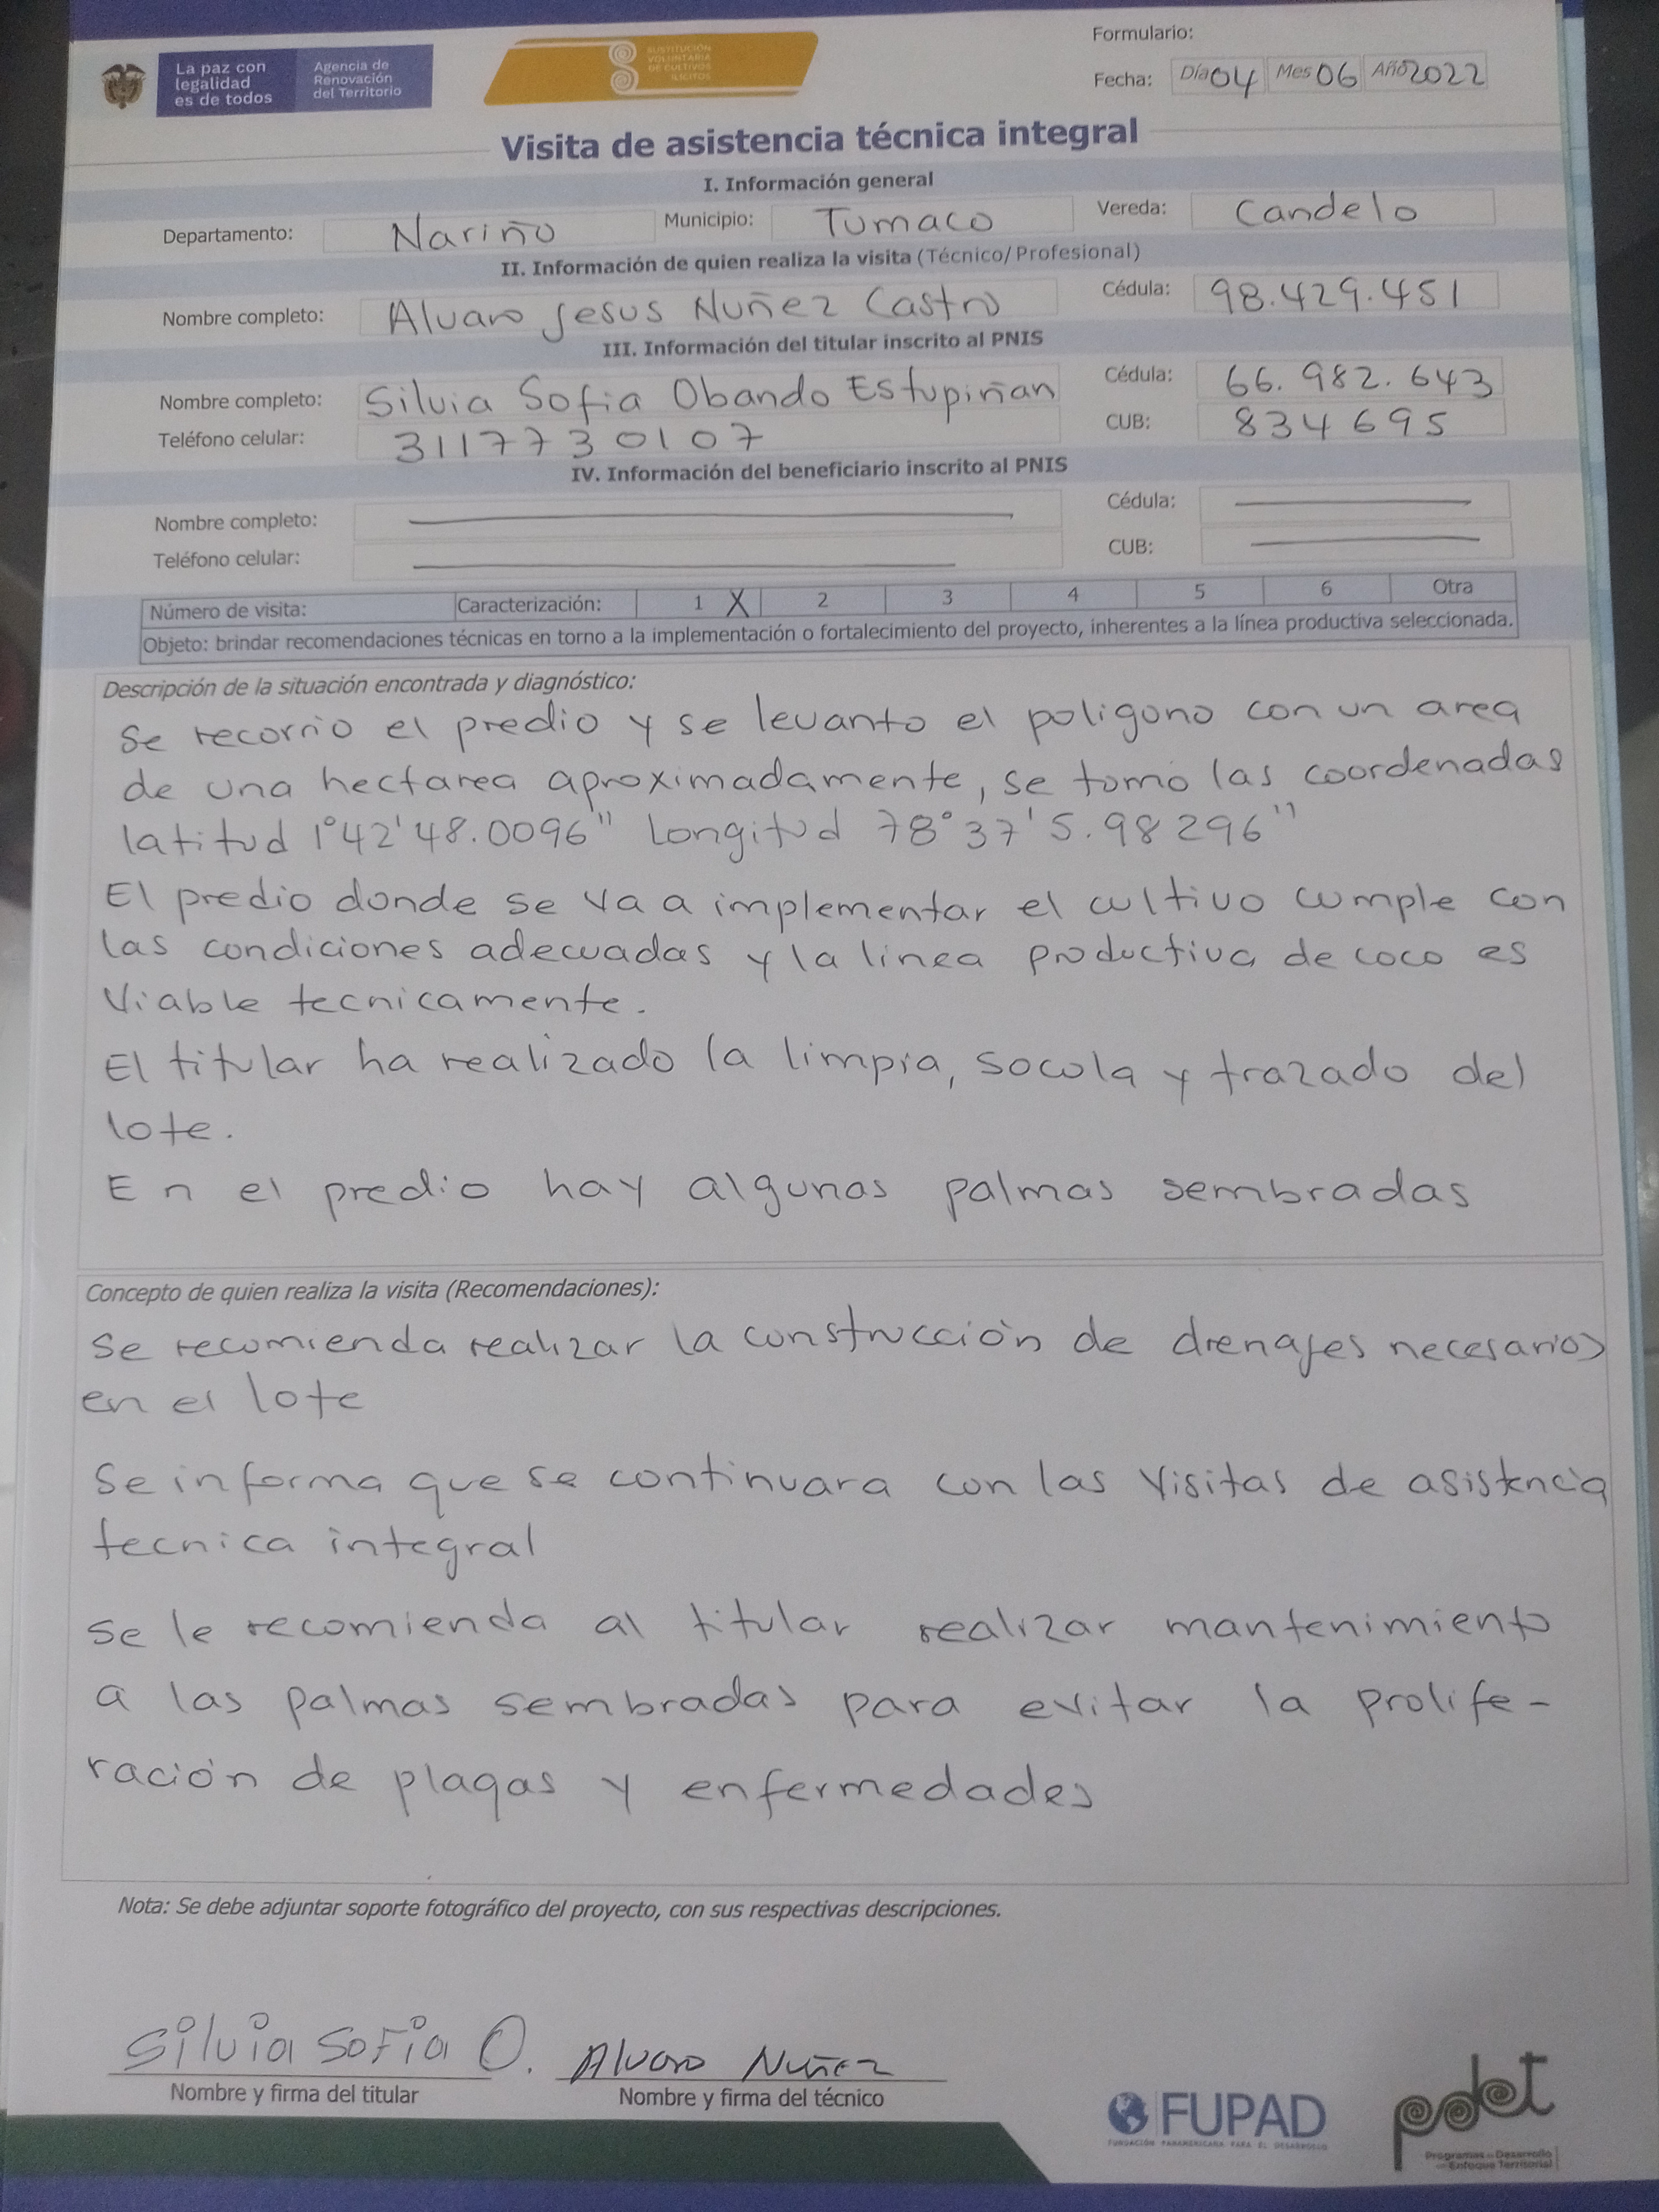 La paz con
legalidad
es de todos
Agencia de
Renovación
del Territorio
SUSTITUCIÓN
VOLUNTARIA
DE CULTIVOS
ILÍCITOS
Formulario:
Fecha: Día 04 Mes 06 Año 2022
Visita de asistencia técnica integral
I. Información general
Departamento: Nariño Municipio: Tumaco Vereda: Candelo
II. Información de quien realiza la visita (Técnico/ Profesional)
Nombre completo: Alvaro Jesus Nuñez Castro Cédula: 98.429.451
III. Información del titular inscrito al PNIS
Nombre completo: Silvia Sofia Obando Estupiñan Cédula: 66.982.643
Teléfono celular: 3117730107 CUB: 834695
IV. Información del beneficiario inscrito al PNIS
Nombre completo: Cédula:
Teléfono celular: CUB:
Número de visita: Caracterización: 1 X 2 3 4 5 6 Otra
Objeto: brindar recomendaciones técnicas en torno a la implementación o fortalecimiento del proyecto, inherentes a la línea productiva seleccionada.
Descripción de la situación encontrada y diagnóstico:
Se recorrio el predio y se levanto el poligono con un area
de una hectarea aproximadamente, se tomo las coordenadas
latitud 1°42'48.0096" Longitud 78°37'5.98296"
El predio donde se va a implementar el cultivo cumple con
las condiciones adecuadas y la linea productiva de coco es
Viable tecnicamente.
El titular ha realizado la limpia, socola y trazado del
lote.
En el predio hay algunas palmas sembradas
Concepto de quien realiza la visita (Recomendaciones):
Se recomienda realizar la construcción de drenajes necesarios
en el lote
Se informa que se continuara con las visitas de asistencia
tecnica integral
Se le recomienda al titular realizar mantenimiento
a las palmas sembradas para evitar la prolife-
ración de plagas y enfermedades
Nota: Se debe adjuntar soporte fotográfico del proyecto, con sus respectivas descripciones.
Silvia Sofia O. Alvaro Nuñez
Nombre y firma del titular Nombre y firma del técnico
FUPAD
FUNDACIÓN PANAMERICANA PARA EL DESARROLLO
pdet
Programas de Desarrollo
con Enfoque Territorial